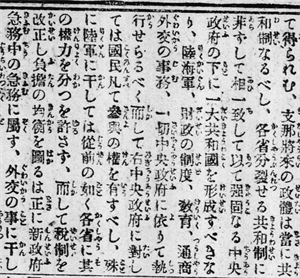 て得られむ、支那將來の政體は當に共
和制なるべし、各省分裂せる共和制に
非ずして相一致して以て强固なる中央
政府の下に一大共和國を形成すべきな
り、陸海軍、財政の制度、敎育、通商、
外交の事務、一切中央政府に依りて執
行せらるべく、而して右中央政府に對し
ては國民凡て參與の權を有すべし、殊
に陸軍に干しては從前の如く各省に其
の權力を分つを許さず、而して稅制を
改正し負擔の均衡を圖るは正に新政府
急務中の急務に屬す、外交の事に干し